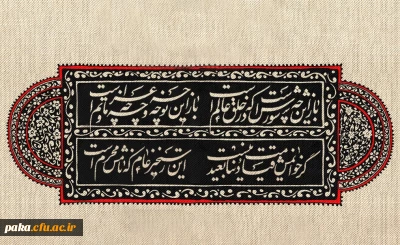 باز این چه شورش است که در خلق عالم است باز این چه نوحه و چه عزا و چه ماتم است
گر خوانمش قیامت دنیا بعید نیست این رستخیز عام که نامش محرم است
paka.cfu.ac.ir